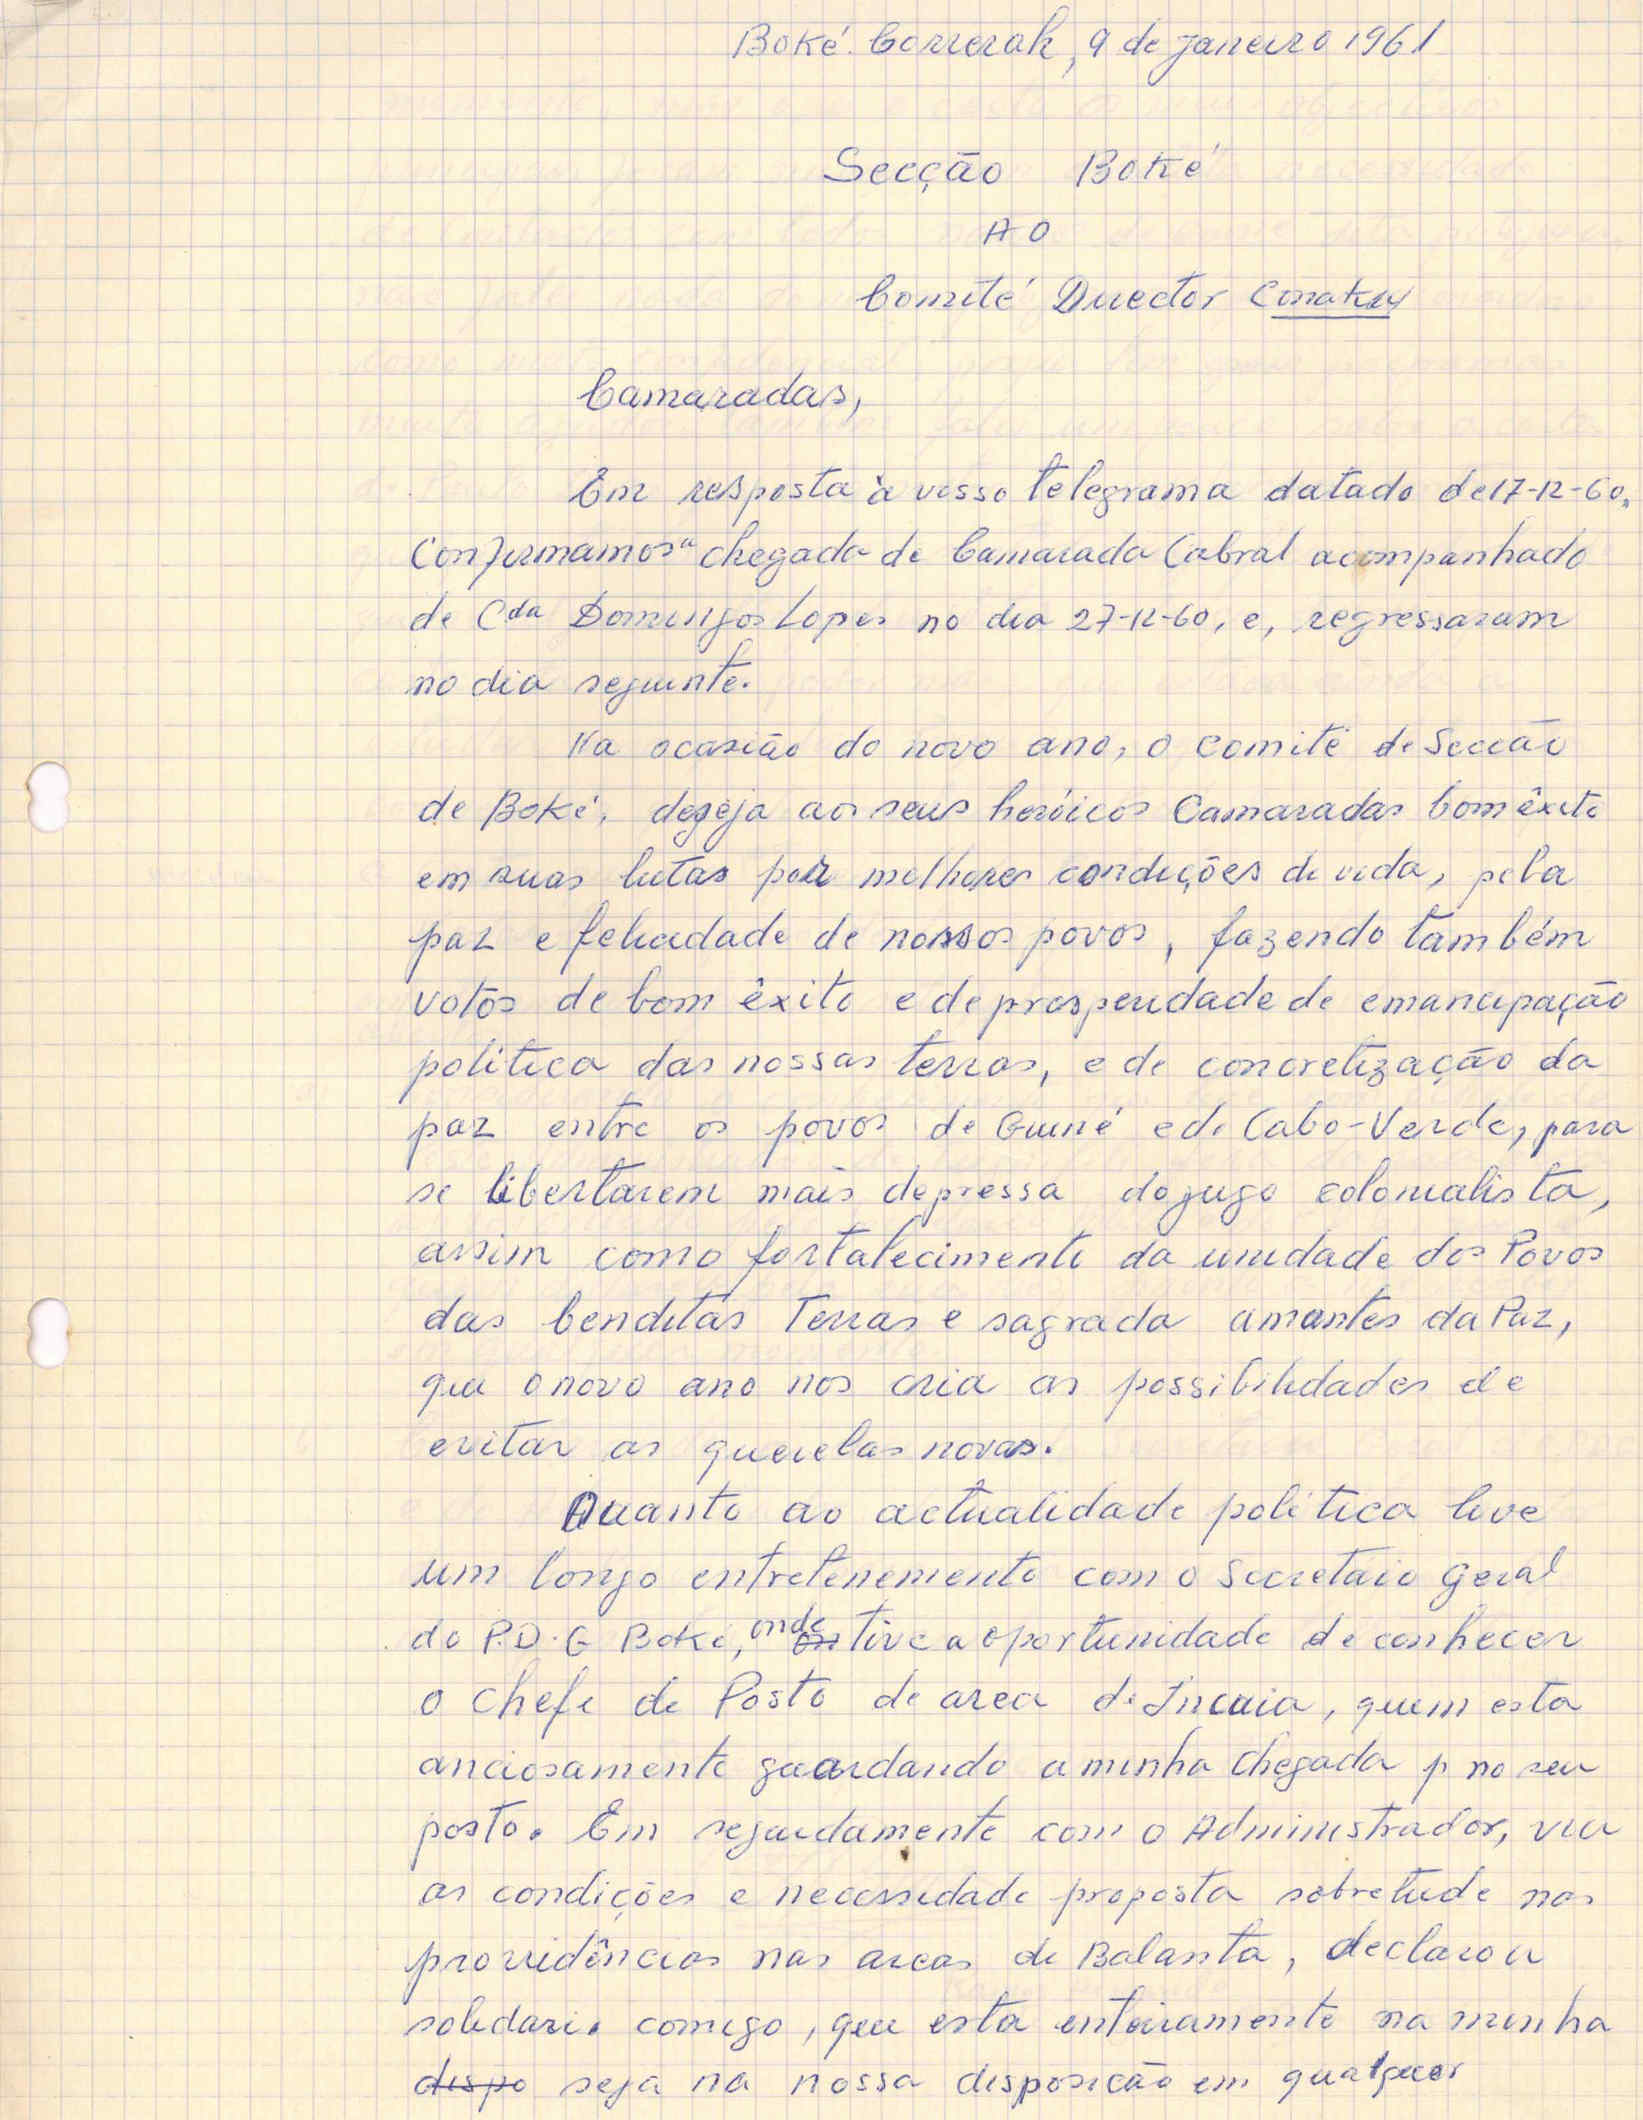 Boké. Correrah, 9 de janeiro 1961
Secção Boké
AO
Comité Director Conakry
Camaradas,
Em resposta à vosso telegrama datado de 17-12-60,
Confirmamos a chegada de Camarada Cabral acompanhado
de Cda Domingos Lopes no dia 27-12-60, e, regressaram
no dia seguinte.
Na ocasião do novo ano, o comité de Secção
de Boké, deseja aos seus heróicos Camaradas bom êxito
em suas lutas por melhores condições de vida, pela
paz e felicidade de nossos povos, fazendo também
votos de bom êxito e de prosperidade de emancipação
politica das nossas terras, e de concretização da
paz entre os povos de Guiné e de Cabo-Verde, para
se libertarem mais depressa do jugo colonialista,
assim como fortalecimento da unidade dos Povos
das benditas Terras e sagrada amantes da Paz,
que o novo ano nos cria as possibilidades de
evitar as querelas novas.
Quanto ao actualidade politica tive
um longo entretenemento com o Secretaio Geral
do P.D.G Boké, onde tive a oportunidade de conhecer
o chefe de Posto de area de, quem esta
anciosamente guardando a minha chegada p no seu
posto. Em seguidamente com o Administrador, viu
as condições e necessidade proposta sobretude nas
providências nas areas de Balanta, declarou
solidario comigo, que esta enteiramente na minha
dispo seja na nossa disposicão em qualquer